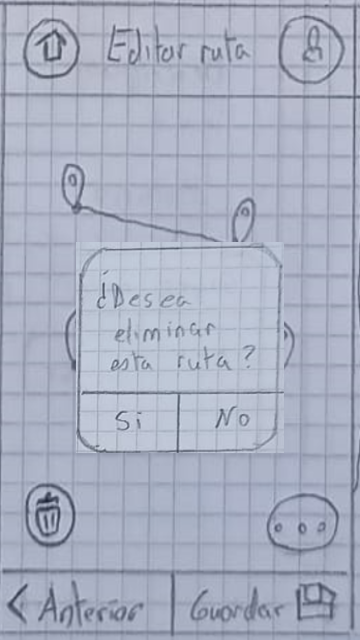 Editar ruta
¿Desea
eliminar
esta ruta?
Si
No
< Anterior
Guardar